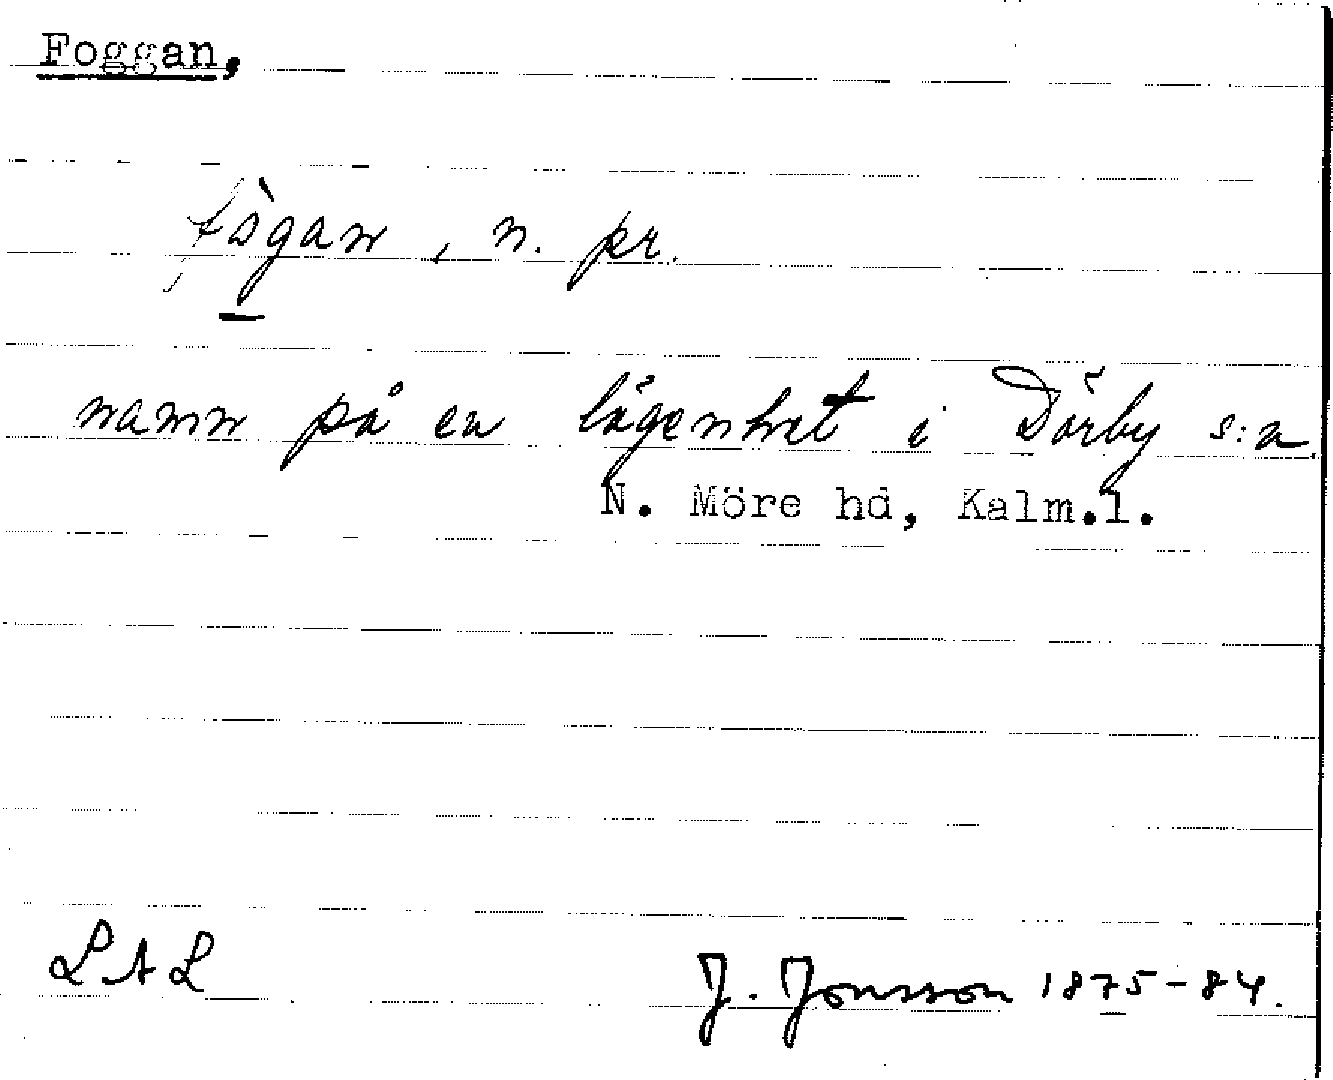 Foggan,
fògan, n. pr.
namn på en lägenhet i Dörby s:n.
N. Möre hd, Kalm.l.
LAL
J. Jonsson 1875-84.